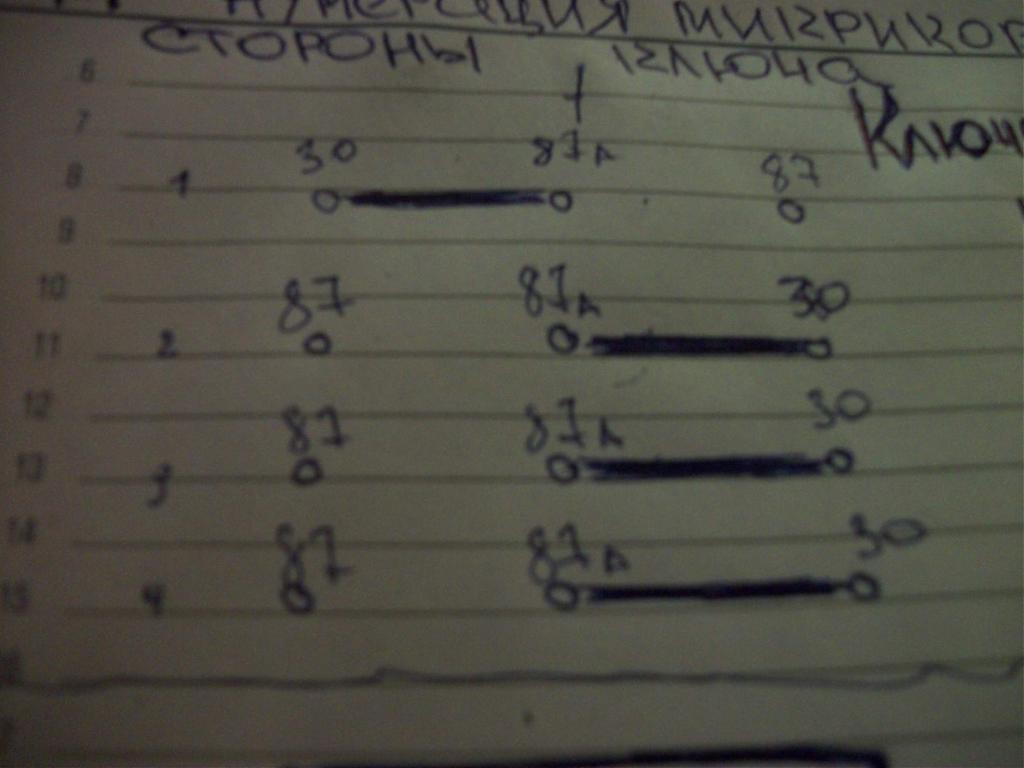 НУМЕРАЦИЯ МИКРИКОВ
СТОРОНЫ КЛЮЧА
6
7 Ключ
30 87А 87
8 1
9
10 87 87А 30
11 2
12 87 87А 30
13 3
14 87 87А 30
15 4